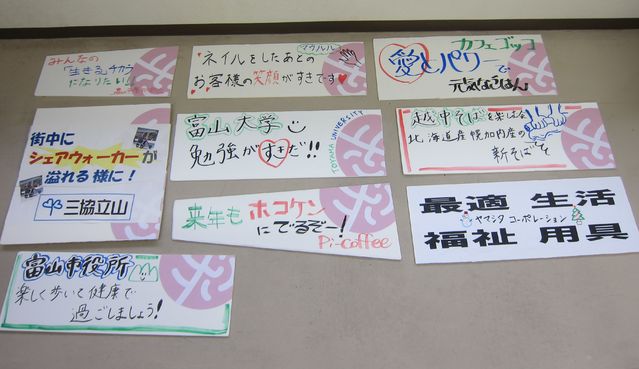 みんなの
「生きる」チカラ
になりたい!
マウルル
ネイルをしたあとの
お客様の笑顔がすきです
カフェゴッコ
愛とパワーで
元気なごはん
街中に
シェアウォーカーが
溢れる様に!
三協立山
富山大学
勉強がすきだ!!
TOYAMA UNIVERSITY
越中そばを楽しむ会
北海道産幌加内産の
新そばです
来年もホコケン
にでるぞー!
Pi-coffee
最適 生活
ヤマシタ コーポレーション
福祉 用具
富山市役所
楽しく歩いて健康で
過ごしましょう!